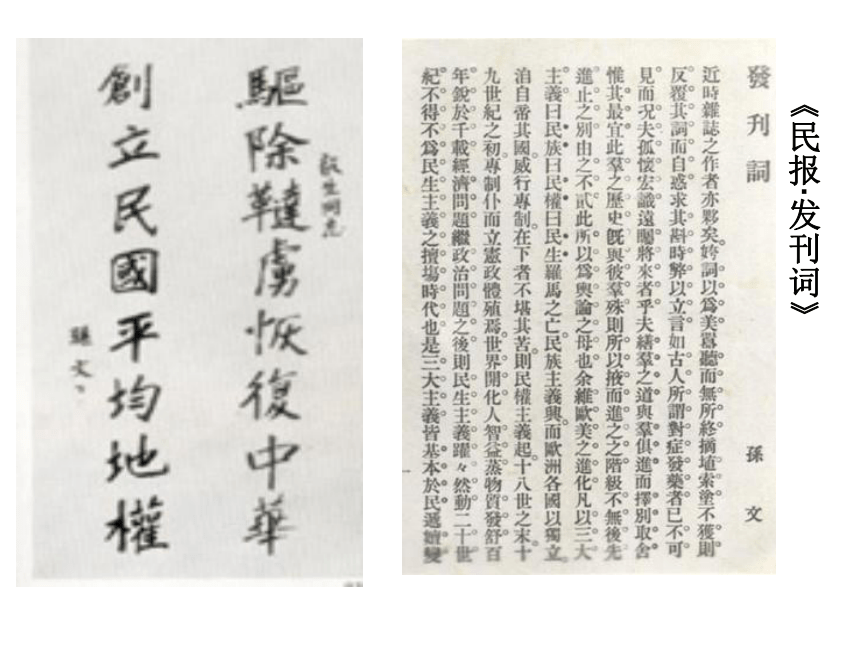 驅除韃虜恢復中華
創立民國平均地權
孫文
《民报·发刊词》
發刊詞
孫文
近時雜誌之作者亦夥矣。姱詞以爲美囂聽而無所終摘埴索塗不獲則
反覆其詞而自惑求其斟時弊以立言如古人所謂對症發藥者已不可
見而况夫孤懷宏識遠矚將來者乎夫繕羣之道與羣俱進而擇別取舍
惟其最宜此羣之歷史既與彼羣殊則所以掖而進之之階級不無後先
進止之別由之不貳此所以爲輿論之母也余維歐美之進化凡以三大
主義曰民族曰民權曰民生羅馬之亡民族主義興而歐洲各國以獨立。
洎自帝其國威行專制在下者不堪其苦則民權主義起十八世之末十
九世紀之初專制仆而立憲政體殖焉世界開化人智益蒸物質發舒百
年銳於千載經濟問題繼政治問題之後則民生主義躍々然動二十世
紀不得不爲民生主義之擅塲時代也是三大主義皆基本於民遞嬗變